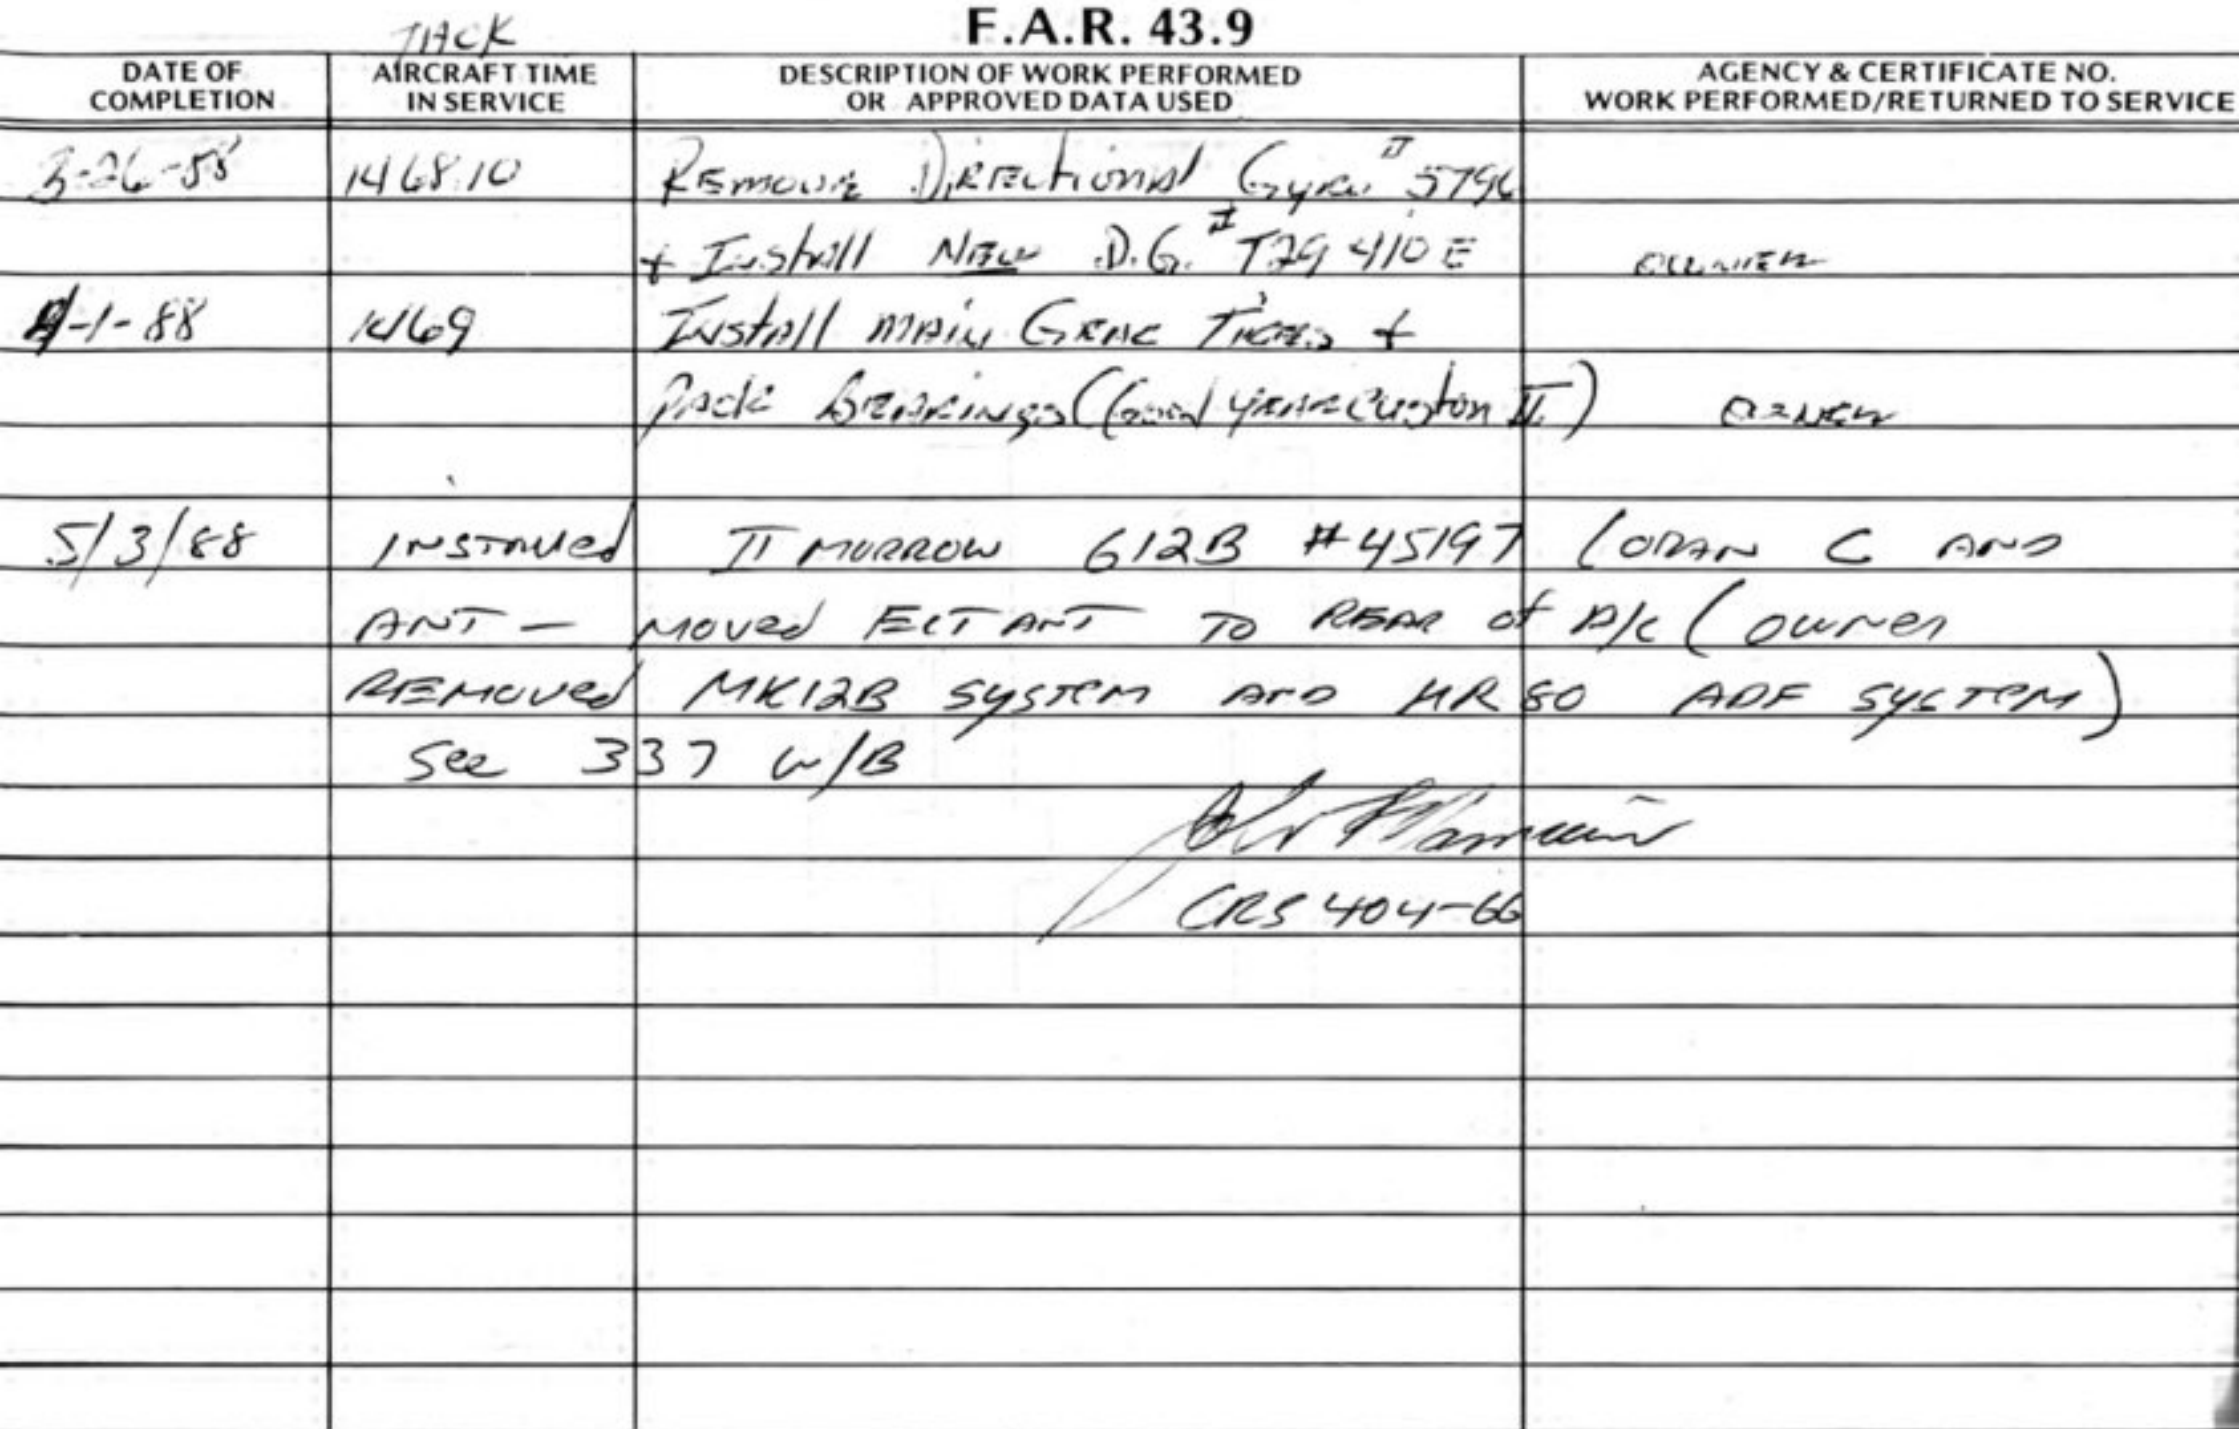 F.A.R. 43.9
TACK
DATE OF COMPLETION
AIRCRAFT TIME IN SERVICE
DESCRIPTION OF WORK PERFORMED OR APPROVED DATA USED
AGENCY & CERTIFICATE NO. WORK PERFORMED/RETURNED TO SERVICE
3-26-88 1468.10 Remove Directional Gyro # 5796
+ Install New D.G. # T29 410 E owner
4-1-88 1469 Install main Gear Tires +
Pack Bearings (Good year Custom II) owner
5/3/88 INSTALLED II MORROW 612B #45197 LORAN C AND
ANT - MOVED ELT ANT TO REAR of A/C (OWNER
REMOVED MK12B SYSTEM AND HR 80 ADF SYSTEM)
See 337 W/B
CRS 404-66